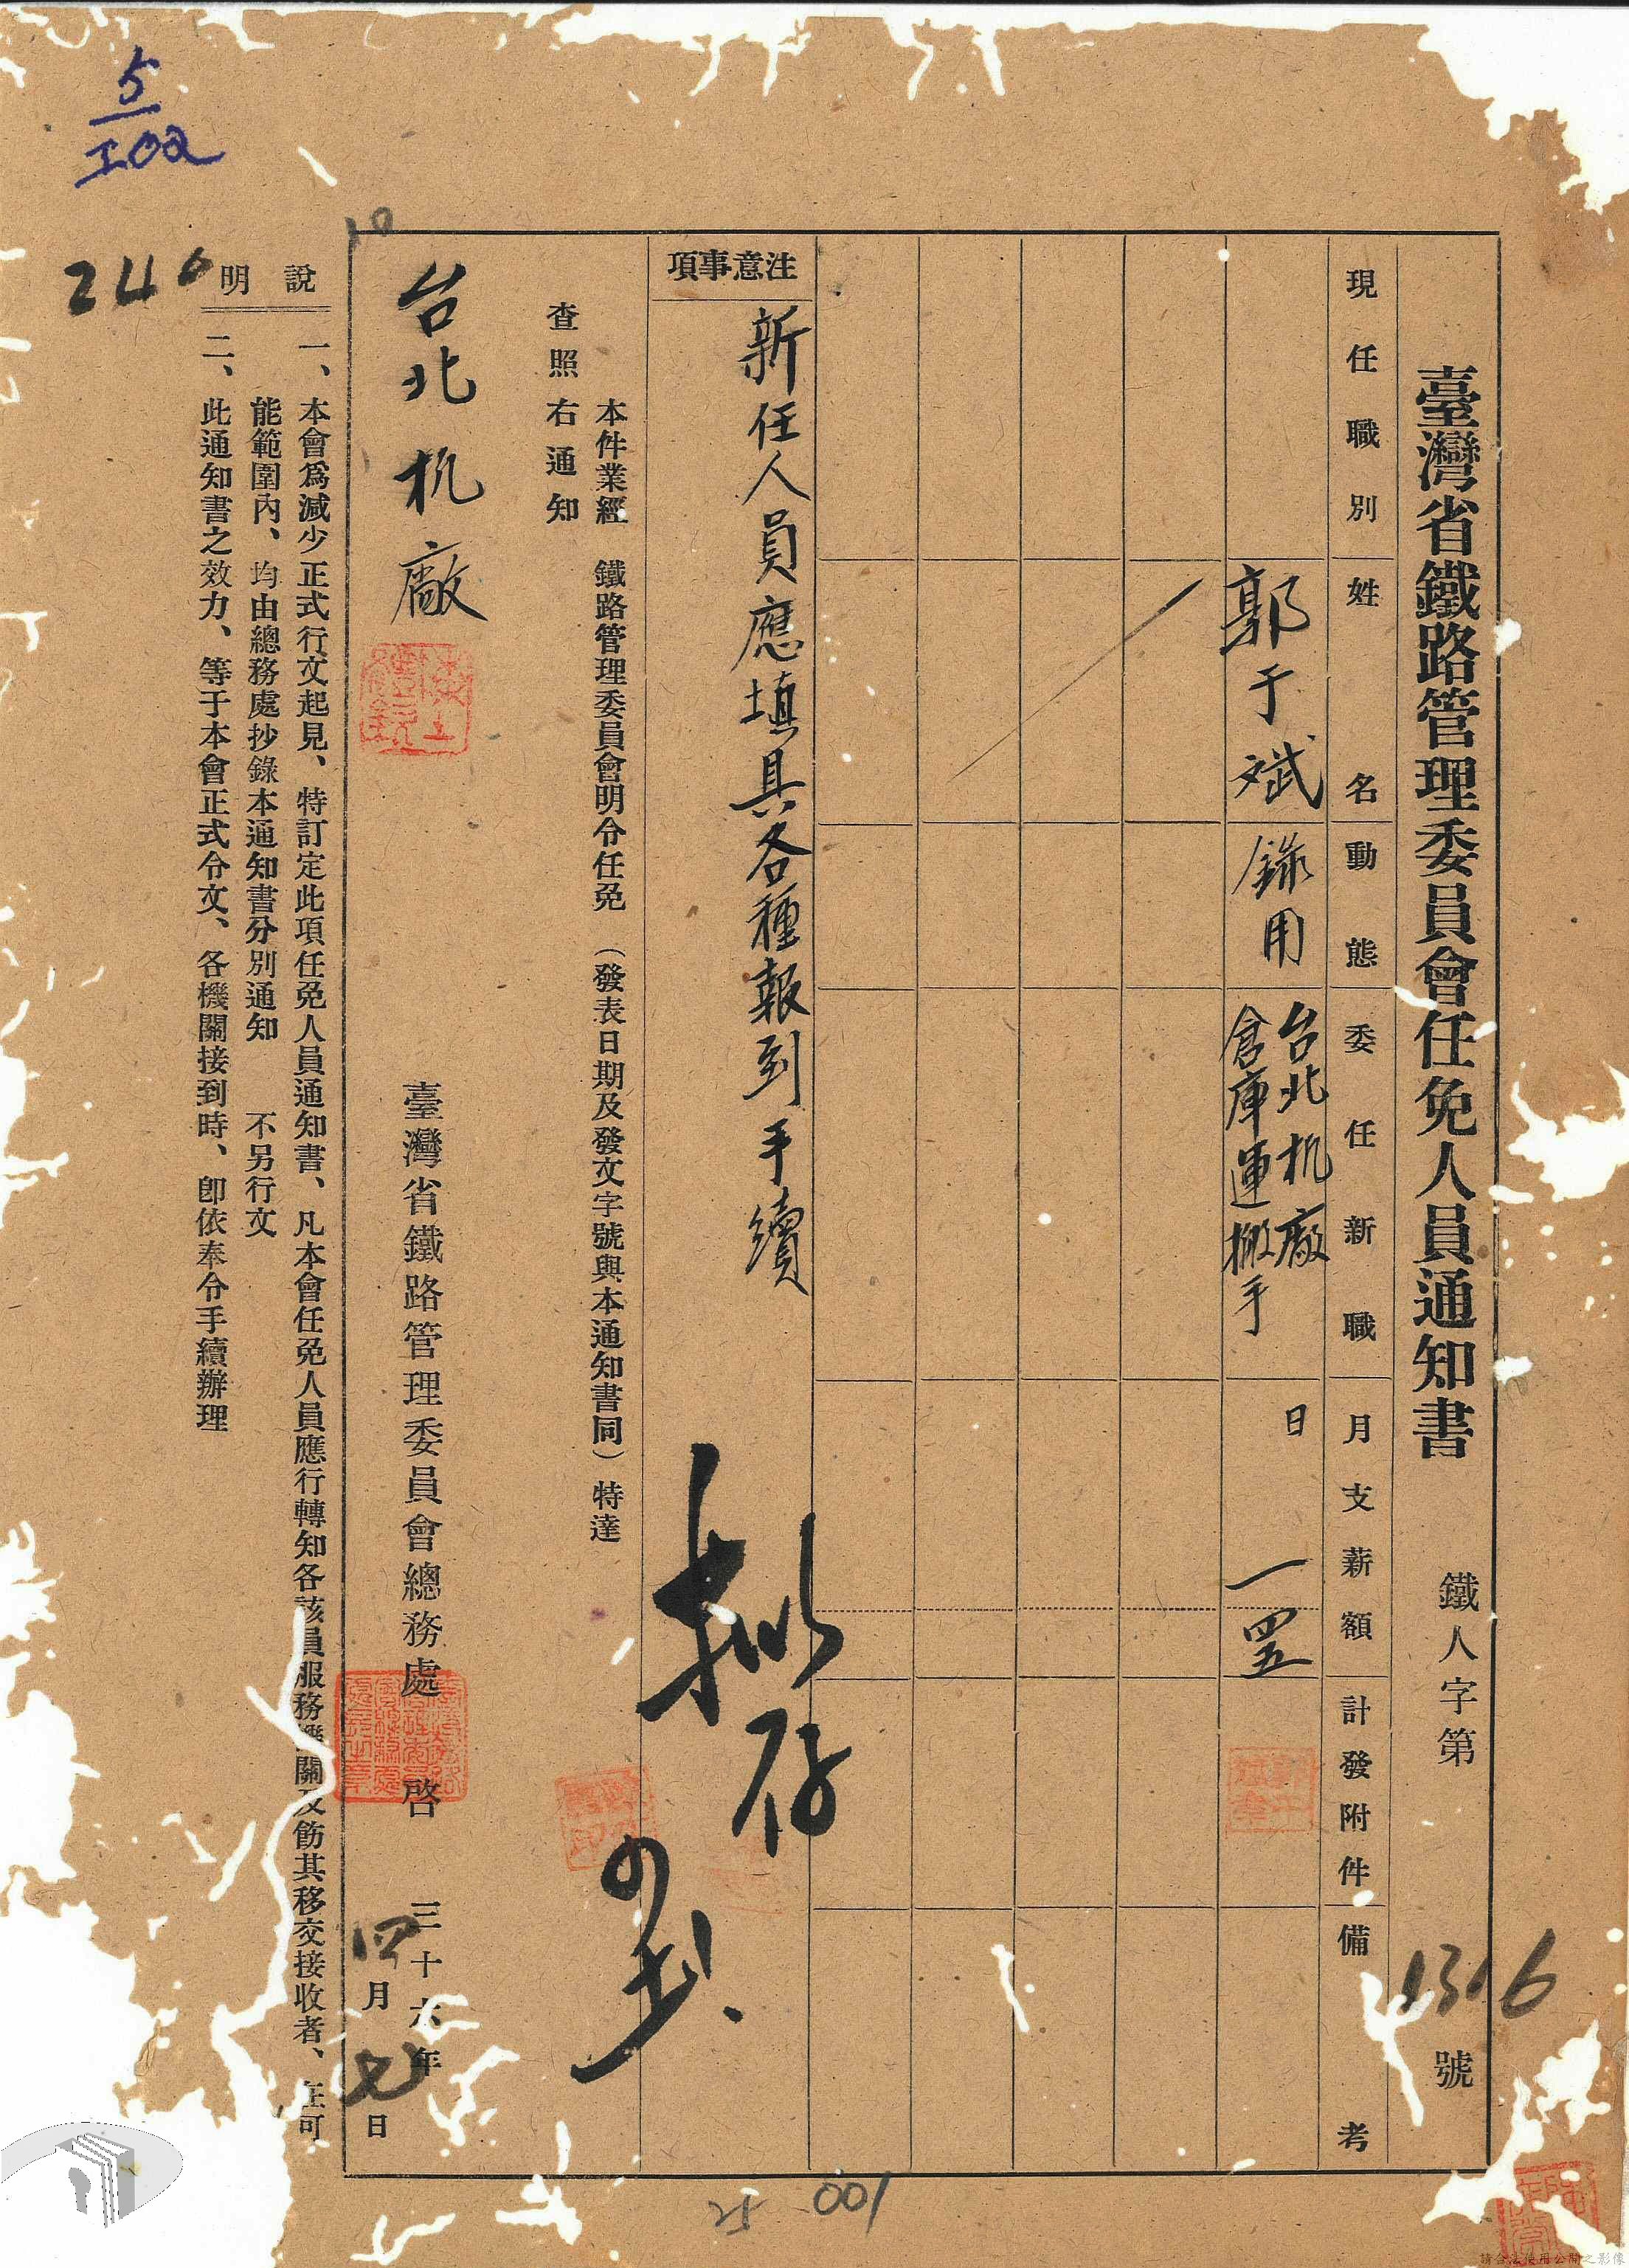 臺灣省鐵路管理委員會任免人員通知書
鐵人字第1316號
現任職別
姓名
動態
委任新職
月支薪額
計發附件
備考
郭于斌
錄用
台北机廠
倉庫運搬手
日
一
四五
注意事項
新任人員應填具各種報到手續
擬存
本件業經 鐵路管理委員會明令任免 (發表日期及發文字號與本通知書同) 特達
查照 右通知
台北机廠
臺灣省鐵路管理委員會總務處 啓
三十六年
四月七日
說明
一、本會爲減少正式行文起見、特訂定此項任免人員通知書、凡本會任免人員應行轉知各該員服務機關及飭其移交接收者、在可
能範圍內、均由總務處抄錄本通知書分別通知 不另行文
二、此通知書之效力、等于本會正式令文、各機關接到時、卽依奉令手續辦理
5
102
246
001
請合法使用公開之影像